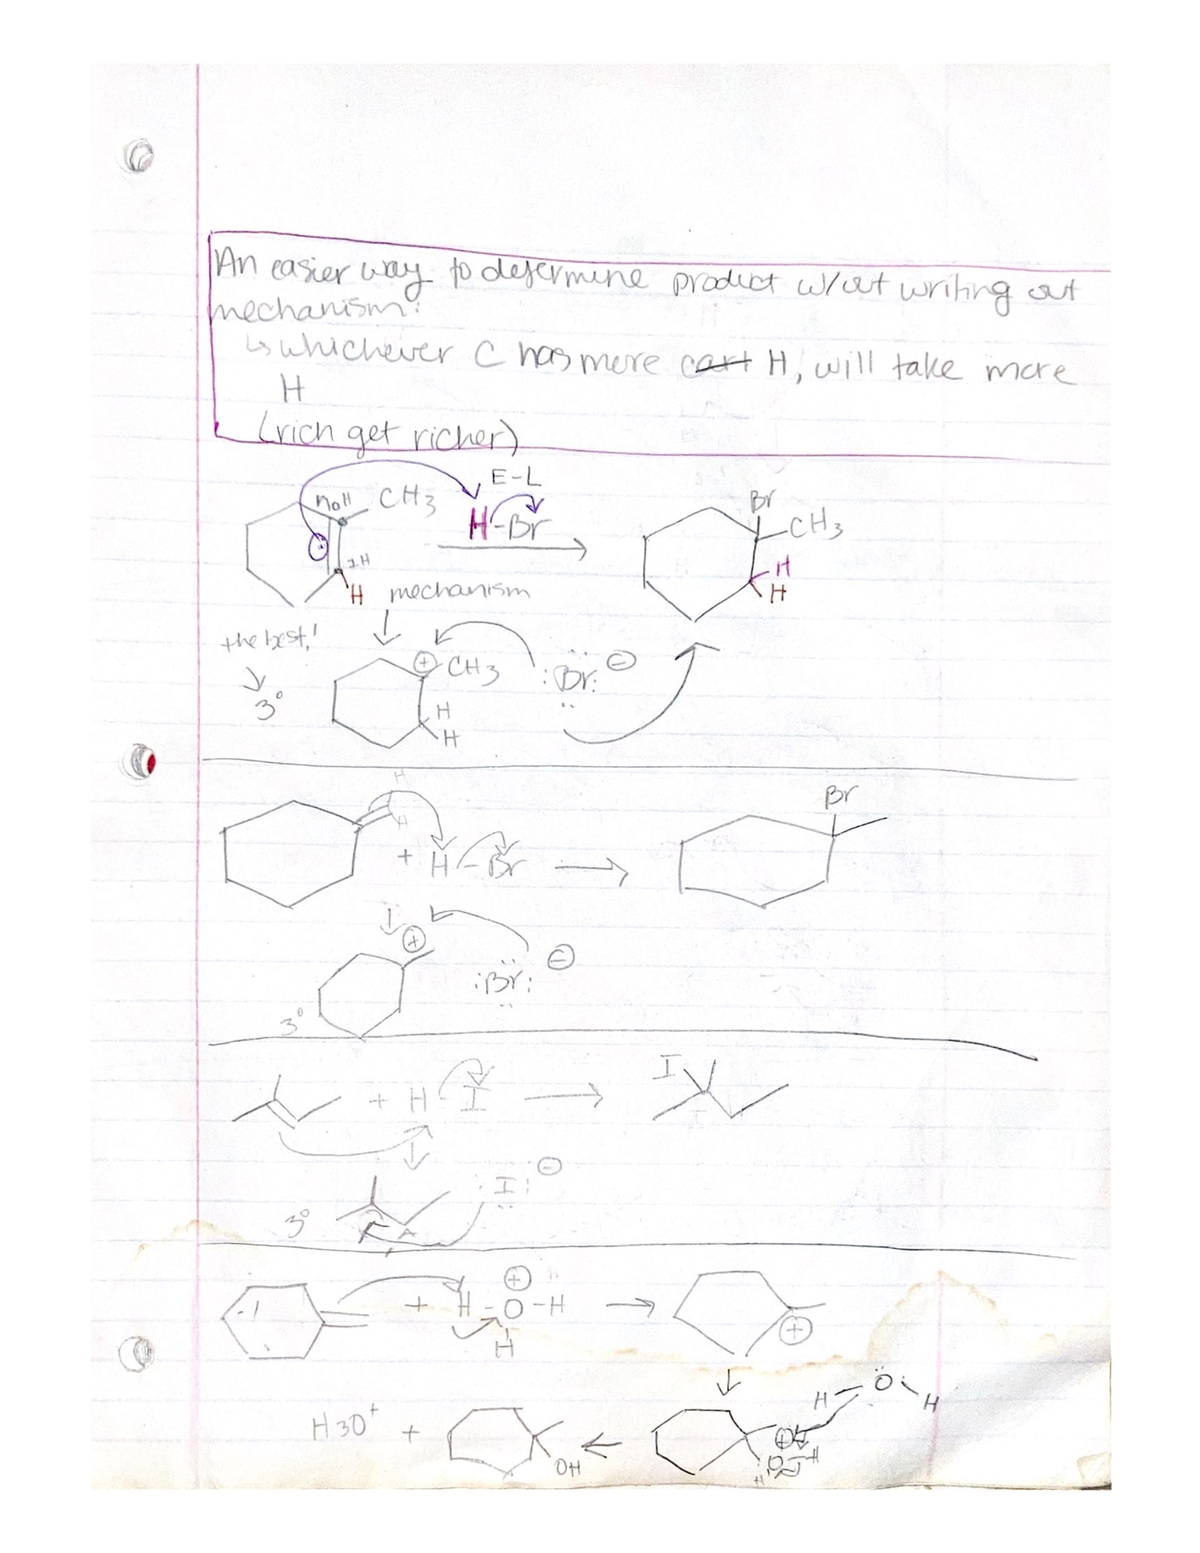 An easier way to determine product w/out writing out
mechanism:
↳ whichever C has more cart H, will take more
H
(rich get richer)
E-L
no H CH3 H-Br Br
CH3
1H H
H mechanism H
the best!
3° CH3 :Br: ⊖
H
H
H
H Br
+ H-Br
⊕
:Br: ⊖
3°
+ H-I I
:I: ⊖
3°
+ H-O-H ⊕
H ⊕
H-O-H
H3O+ + OH ⊕
H O-H